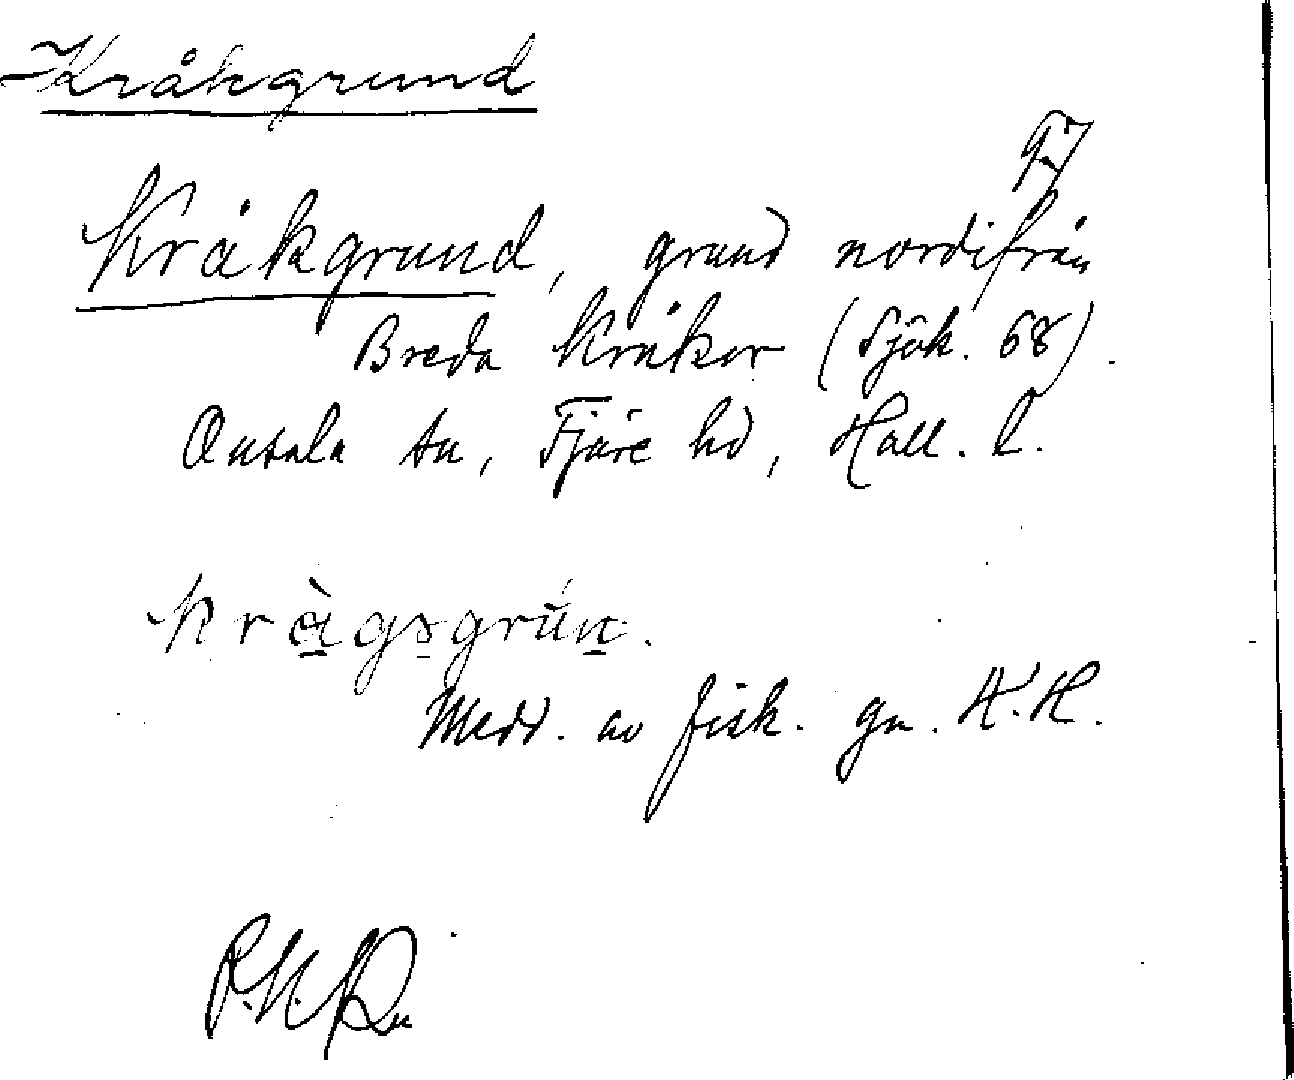 Kråkgrund
97
Kråkgrund, grund nordifrån
Breda Kråkor (Sjök. 68).
Onsala sn, Fjäre hd, Hall. l.
Medd. av fisk. gm. K.H.